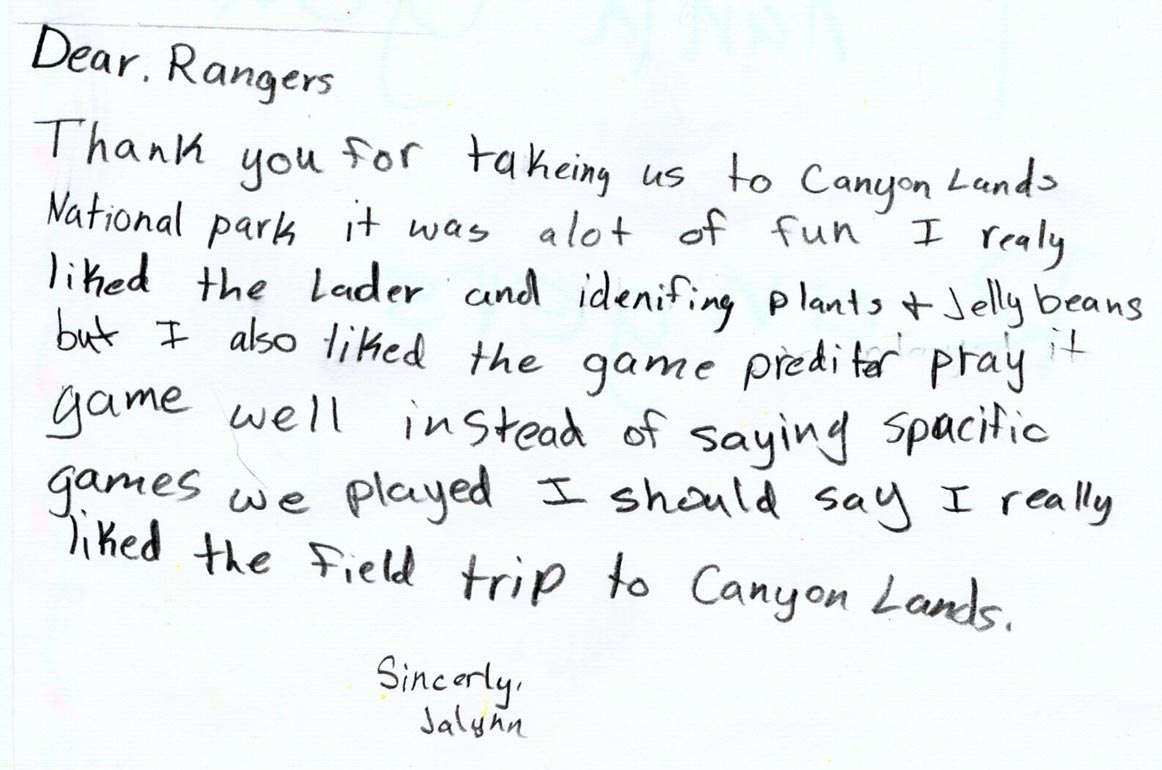 Dear. Rangers
Thank you for takeing us to Canyon Lands
National park it was alot of fun I realy
liked the Lader and idenifing plants + Jelly beans
but I also liked the game prediter pray it
game well instead of saying spacific
games we played I should say I really
liked the field trip to Canyon Lands.
Sincerly,
Jalynn